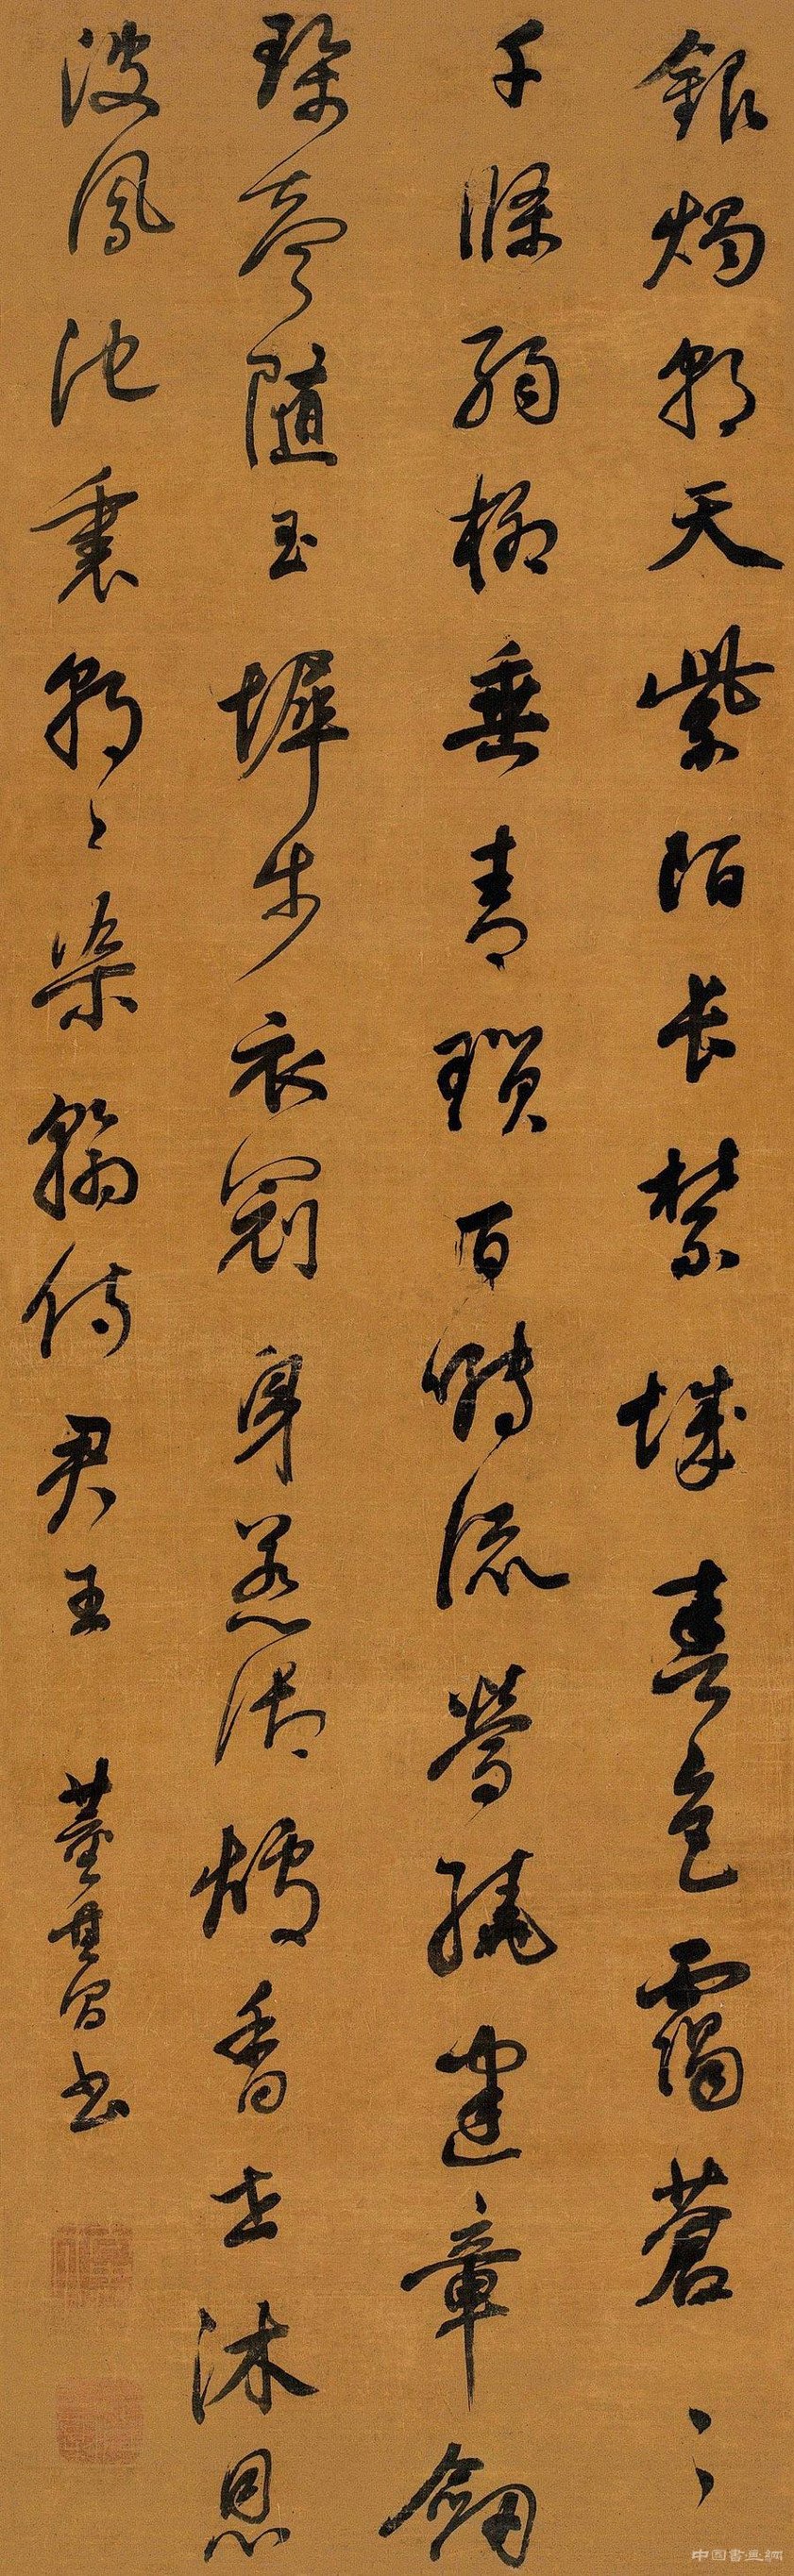 銀燭朝天紫陌長禁城春色靄蒼〻
千條弱柳垂青瑣百囀流鶯繞建章劍
珮聲隨玉墀步衣冠身惹御爐香共沐恩
波鳳池裏朝〻染翰侍君王 董其昌書
中国書画網